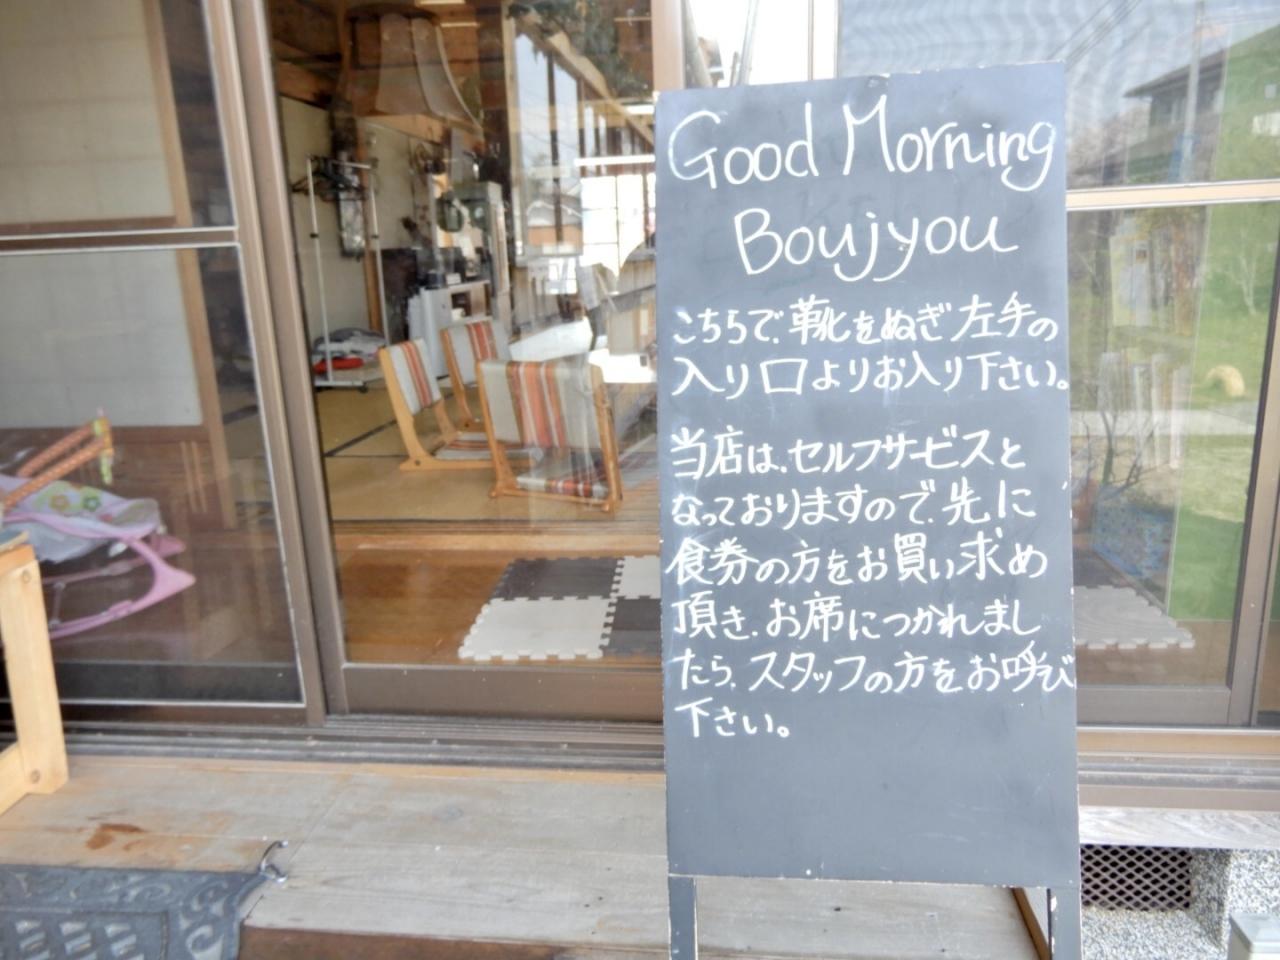 Good Morning
Boujyou
こちらで、靴をぬぎ左手の
入り口よりお入り下さい。
当店は、セルフサービスと
なっておりますので、先に
食券の方をお買い求め
頂き、お席につかれまし
たら、スタッフの方をお呼び
下さい。